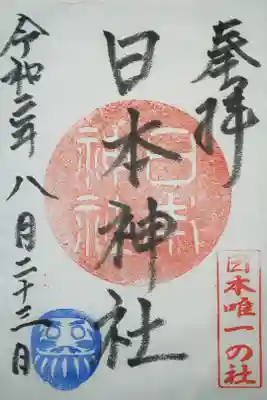 奉拝
日本神社
日本神社
令和二年八月二十三日
日本唯一の社